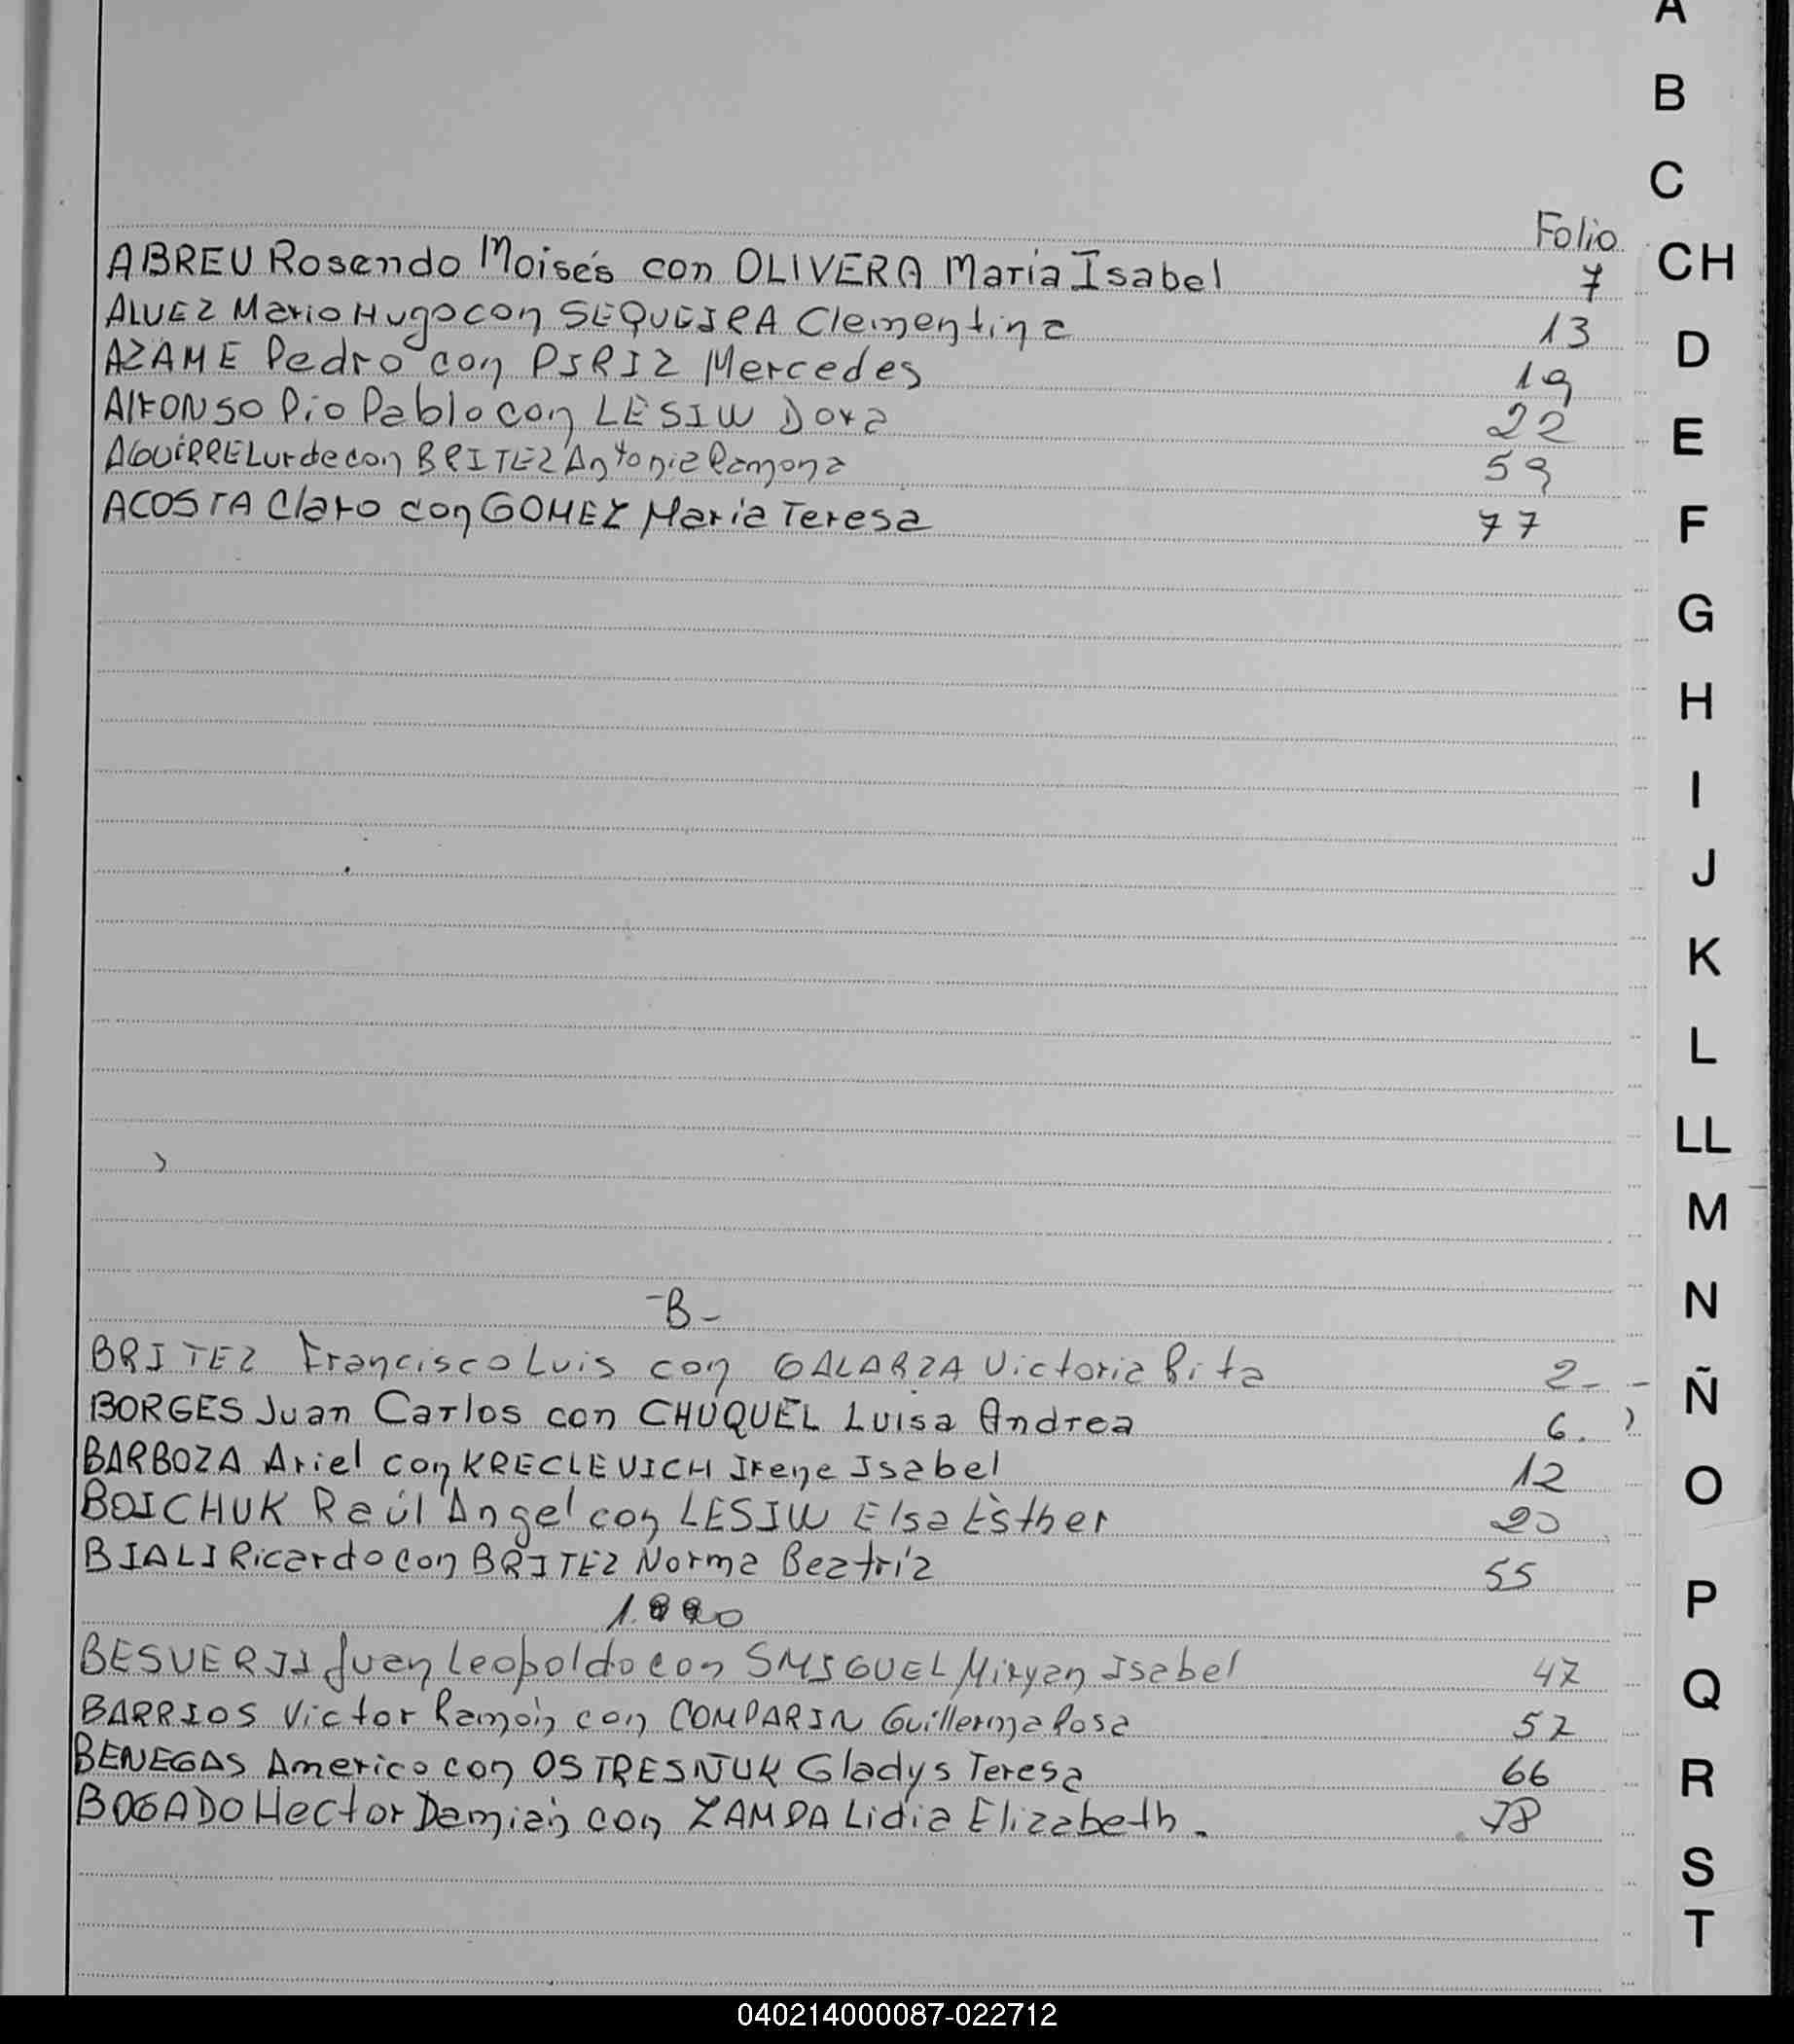 Folio
ABREU Rosendo Moisés con OLIVERA Maria Isabel 7
ALVEZ Mario Hugo con SEQUEIRA Clementina 13
AZAME Pedro con PIRIZ Mercedes 19
AlFONSO Pio Pablo con LESIW Dora 22
AGUIRRE Lurde con BRITEZ Antonia Ramona 59
ACOSTA Claro con GOMEZ Maria Teresa 77
-B-
BRITEZ Francisco Luis con GALARZA Victoria Rita 2-
BORGES Juan Carlos con CHUQUEL Luisa Andrea 6.
BARBOZA Ariel con KRECLEVICH Irene Isabel 12
BOICHUK Raúl Angel con LESIW Elsa Esther 20
BIALI Ricardo con BRITEZ Norma Beatríz 55
BESVERII Juan Leopoldo con SMIGUEL Miryan Isabel 47
BARRIOS Victor Ramón con COMPARIN Guillerma Rosa 57
BENEGAS Americo con OSTRESNIUK Gladys Teresa 66
BOGADO Hector Damián con ZAMPA Lidia Elizabeth. 78
A
B
C
CH
D
E
F
G
H
I
J
K
L
LL
M
N
Ñ
O
P
Q
R
S
T
040214000087-022712